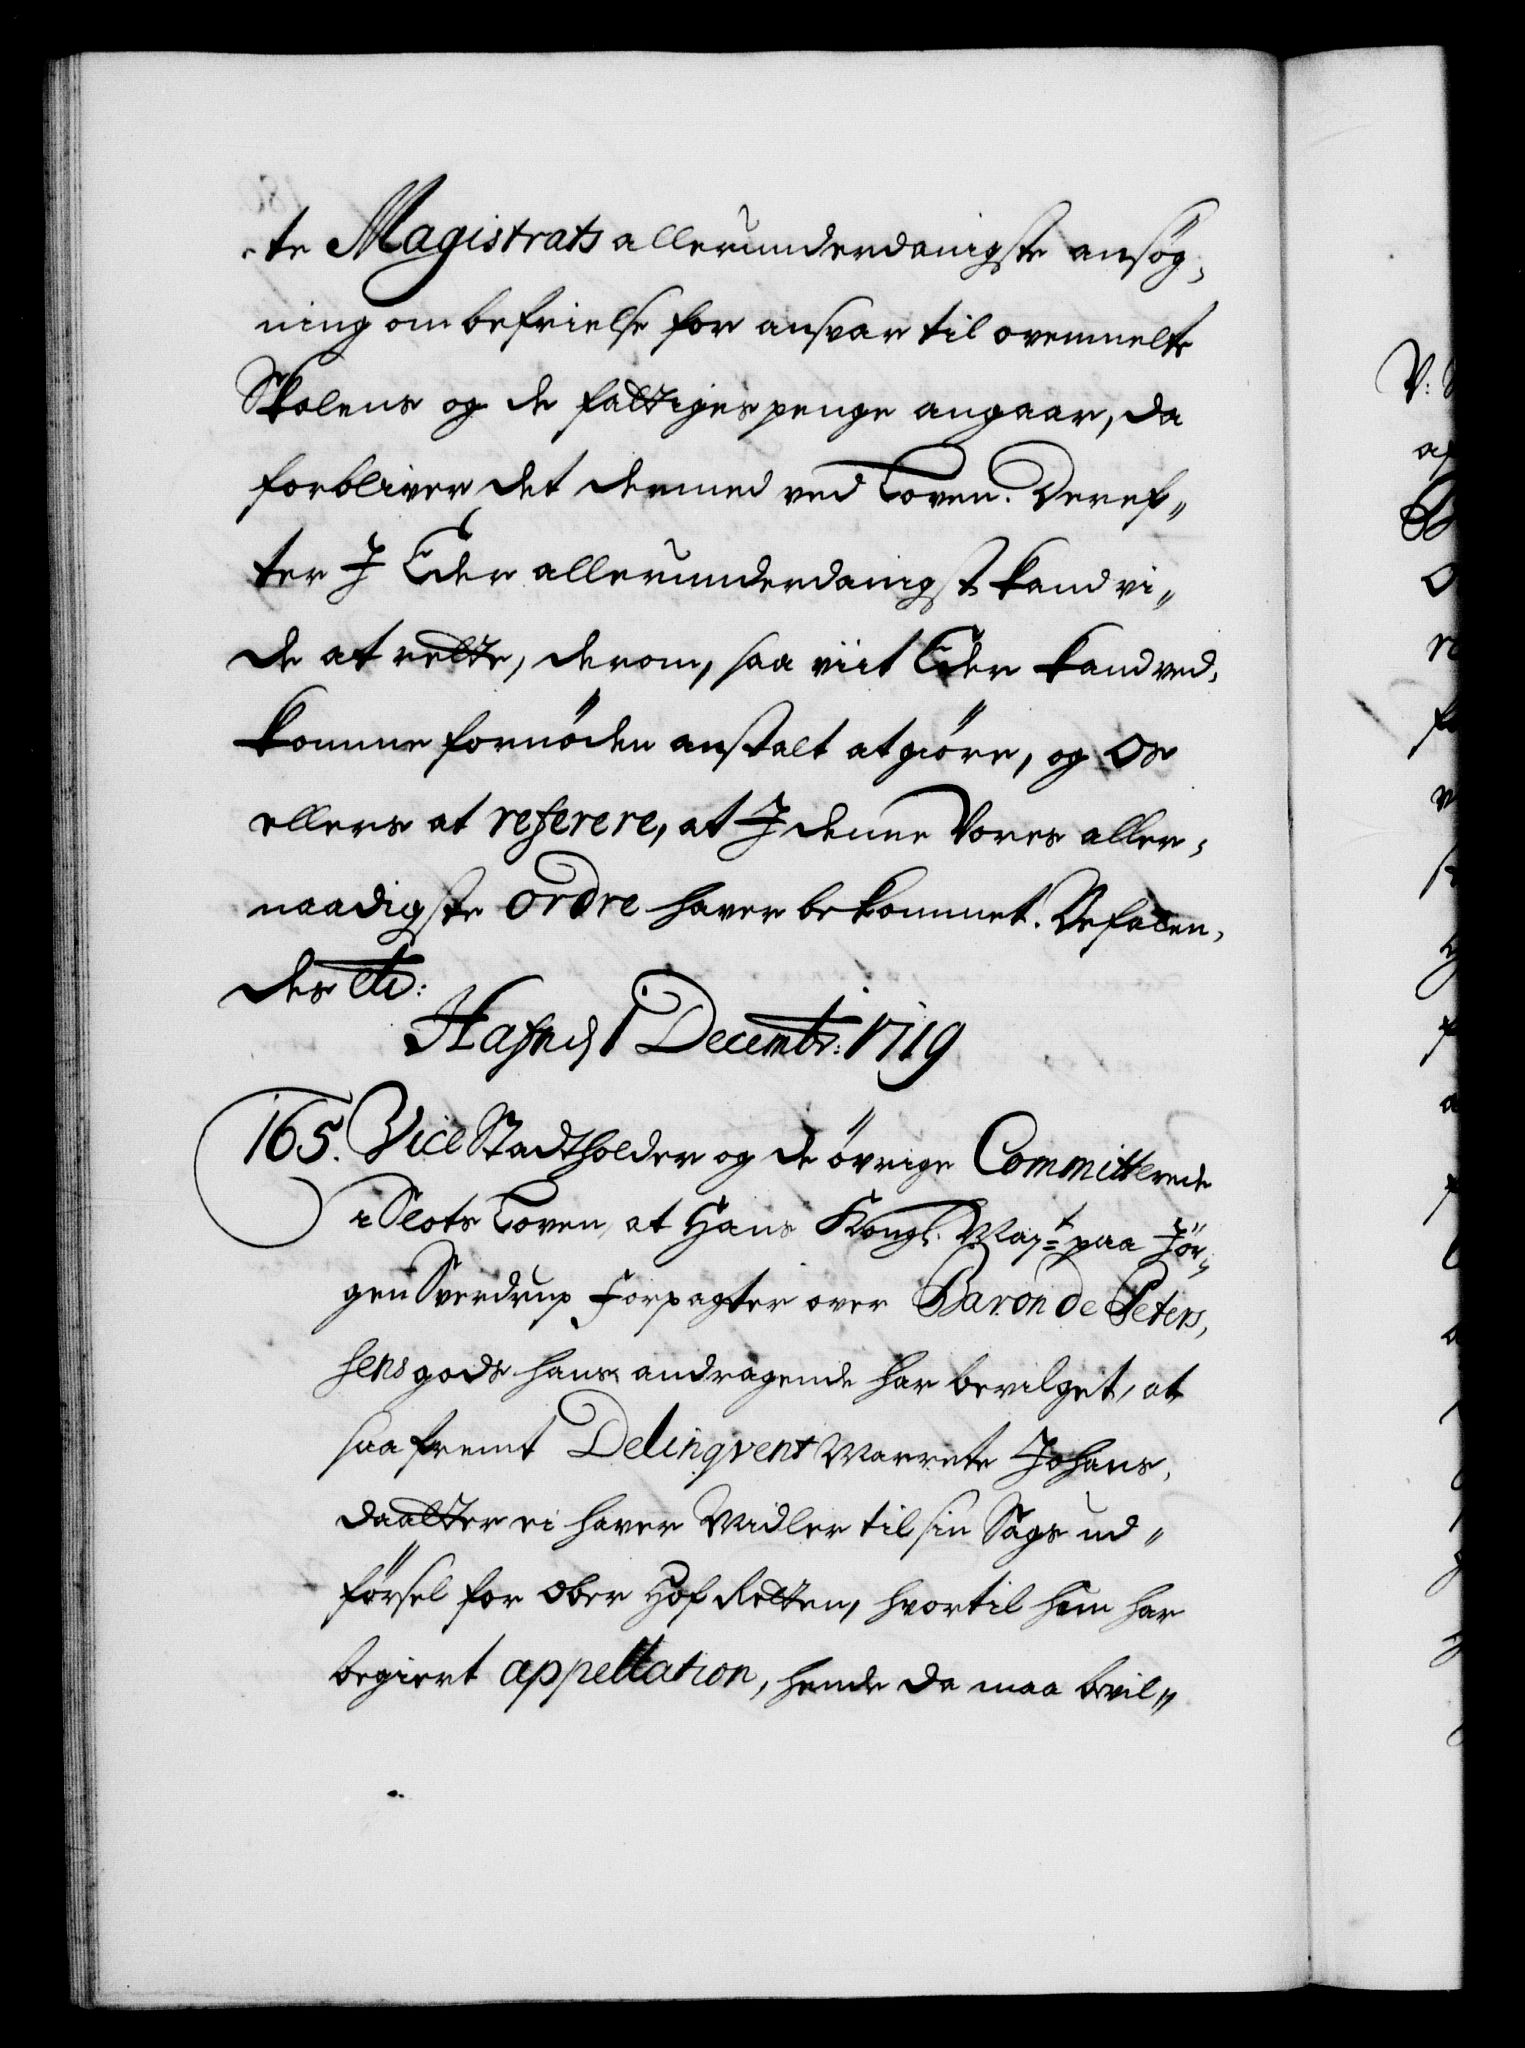 te Magistrats allerunderdanigste ansøg,
ning om befrielse for ansvar til ovenmelte
Skolens og de fattiges penge angaar, da
forbliver det dermed ved Loven. Deref„
ter I Eder allerunderdanigst kand vi„
de at rette, derom, saa viit Eder kand ved,
komme fornöden anstalt at giöre, og Os
ellers at referere, at I denne Vores aller,
naadigste ordre haver bekommet. Befalen,
des etc:
Hafn d 1 Decembr: 1719
165. Vice Stadtholder og de övrige Committerede
i Slots Loven, at Hans Kongl. Mayt paa Jör,
gen Sverdrup Forpagter over Baron de Peters,
sens gods hans andragende har bevilget, at
saafremt Delinqvent Marrete Johans,
daatter ei haver Midler til sin Sags ud„
försel for Ober Hof Retten, hvortil hun har
begiert appellation, hende da maa bevil„